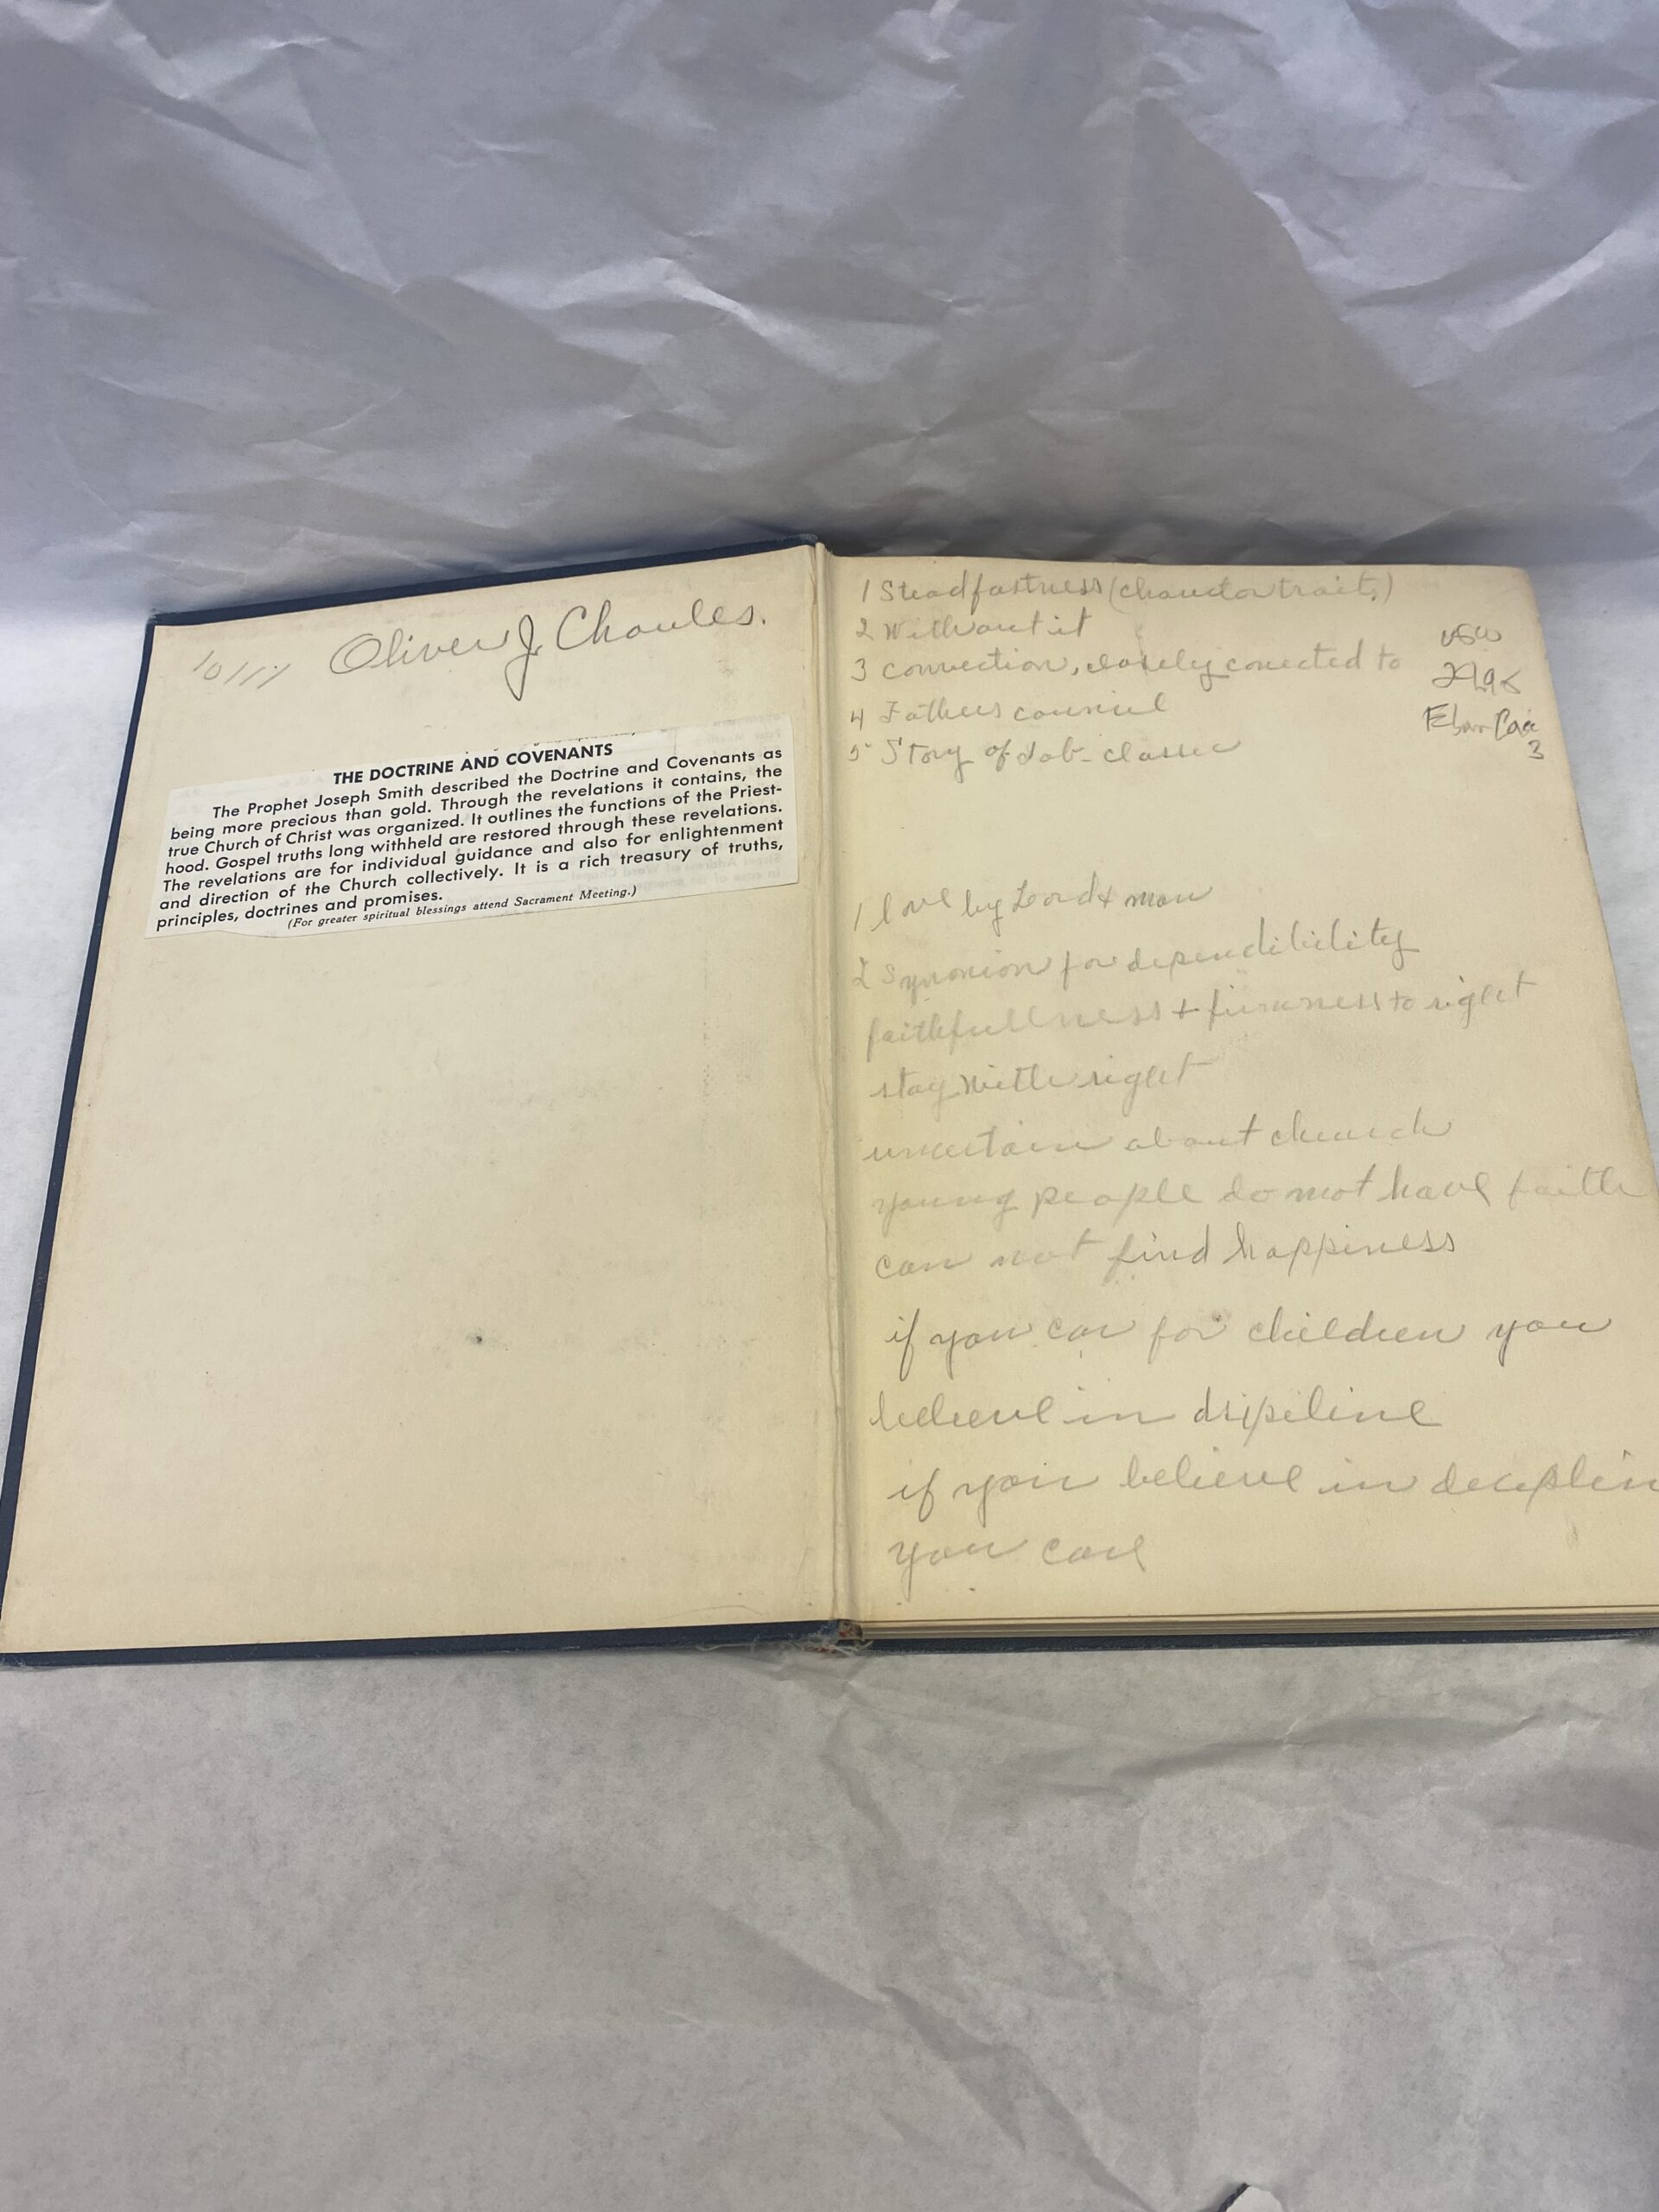 Oliver J. Choules.
THE DOCTRINE AND COVENANTS
The Prophet Joseph Smith described the Doctrine and Covenants as
being more precious than gold. Through the revelations it contains, the
true Church of Christ was organized. It outlines the functions of the Priest-
hood. Gospel truths long withheld are restored through these revelations.
The revelations are for individual guidance and also for enlightenment
and direction of the Church collectively. It is a rich treasury of truths,
principles, doctrines and promises.
(For greater spiritual blessings attend Sacrament Meeting.)
1 Steadfastness ( trait,)
2 Without it
3 convection, closely conected to
4 Fathers council
5 Story of
3
1 love by Lord & man
2 for dependibility
faithfullness + firmness to right
stay with right
uncertain about church
young people do not have faith
can not find happiness
if you car for children you
believe in
if you believe in
you care